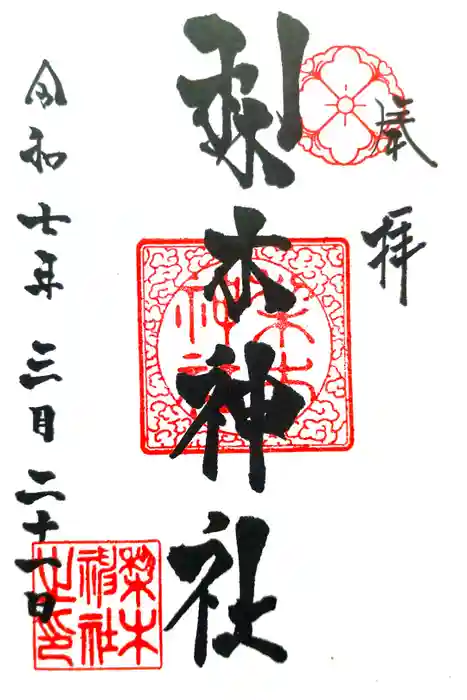 奉拝
梨木神社
梨木
神社
令和七年三月二十一日
梨木
神社
之印